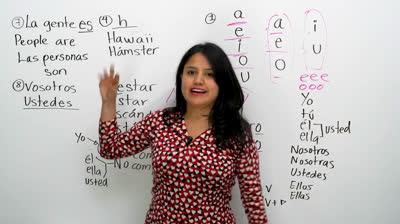 ① La gente es
People are
Las personas
son
⑧ Vosotros
Ustedes
④ h
Hawaii
Hámster
estar
star
Yo
él
ella
usted
No com
①
a
e
i
o
u
a
e
o
i
u
eee
ooo
Yo
tú
él
ella
usted
Nosotros
Nosotras
Ustedes
Ellos
Ellas
V